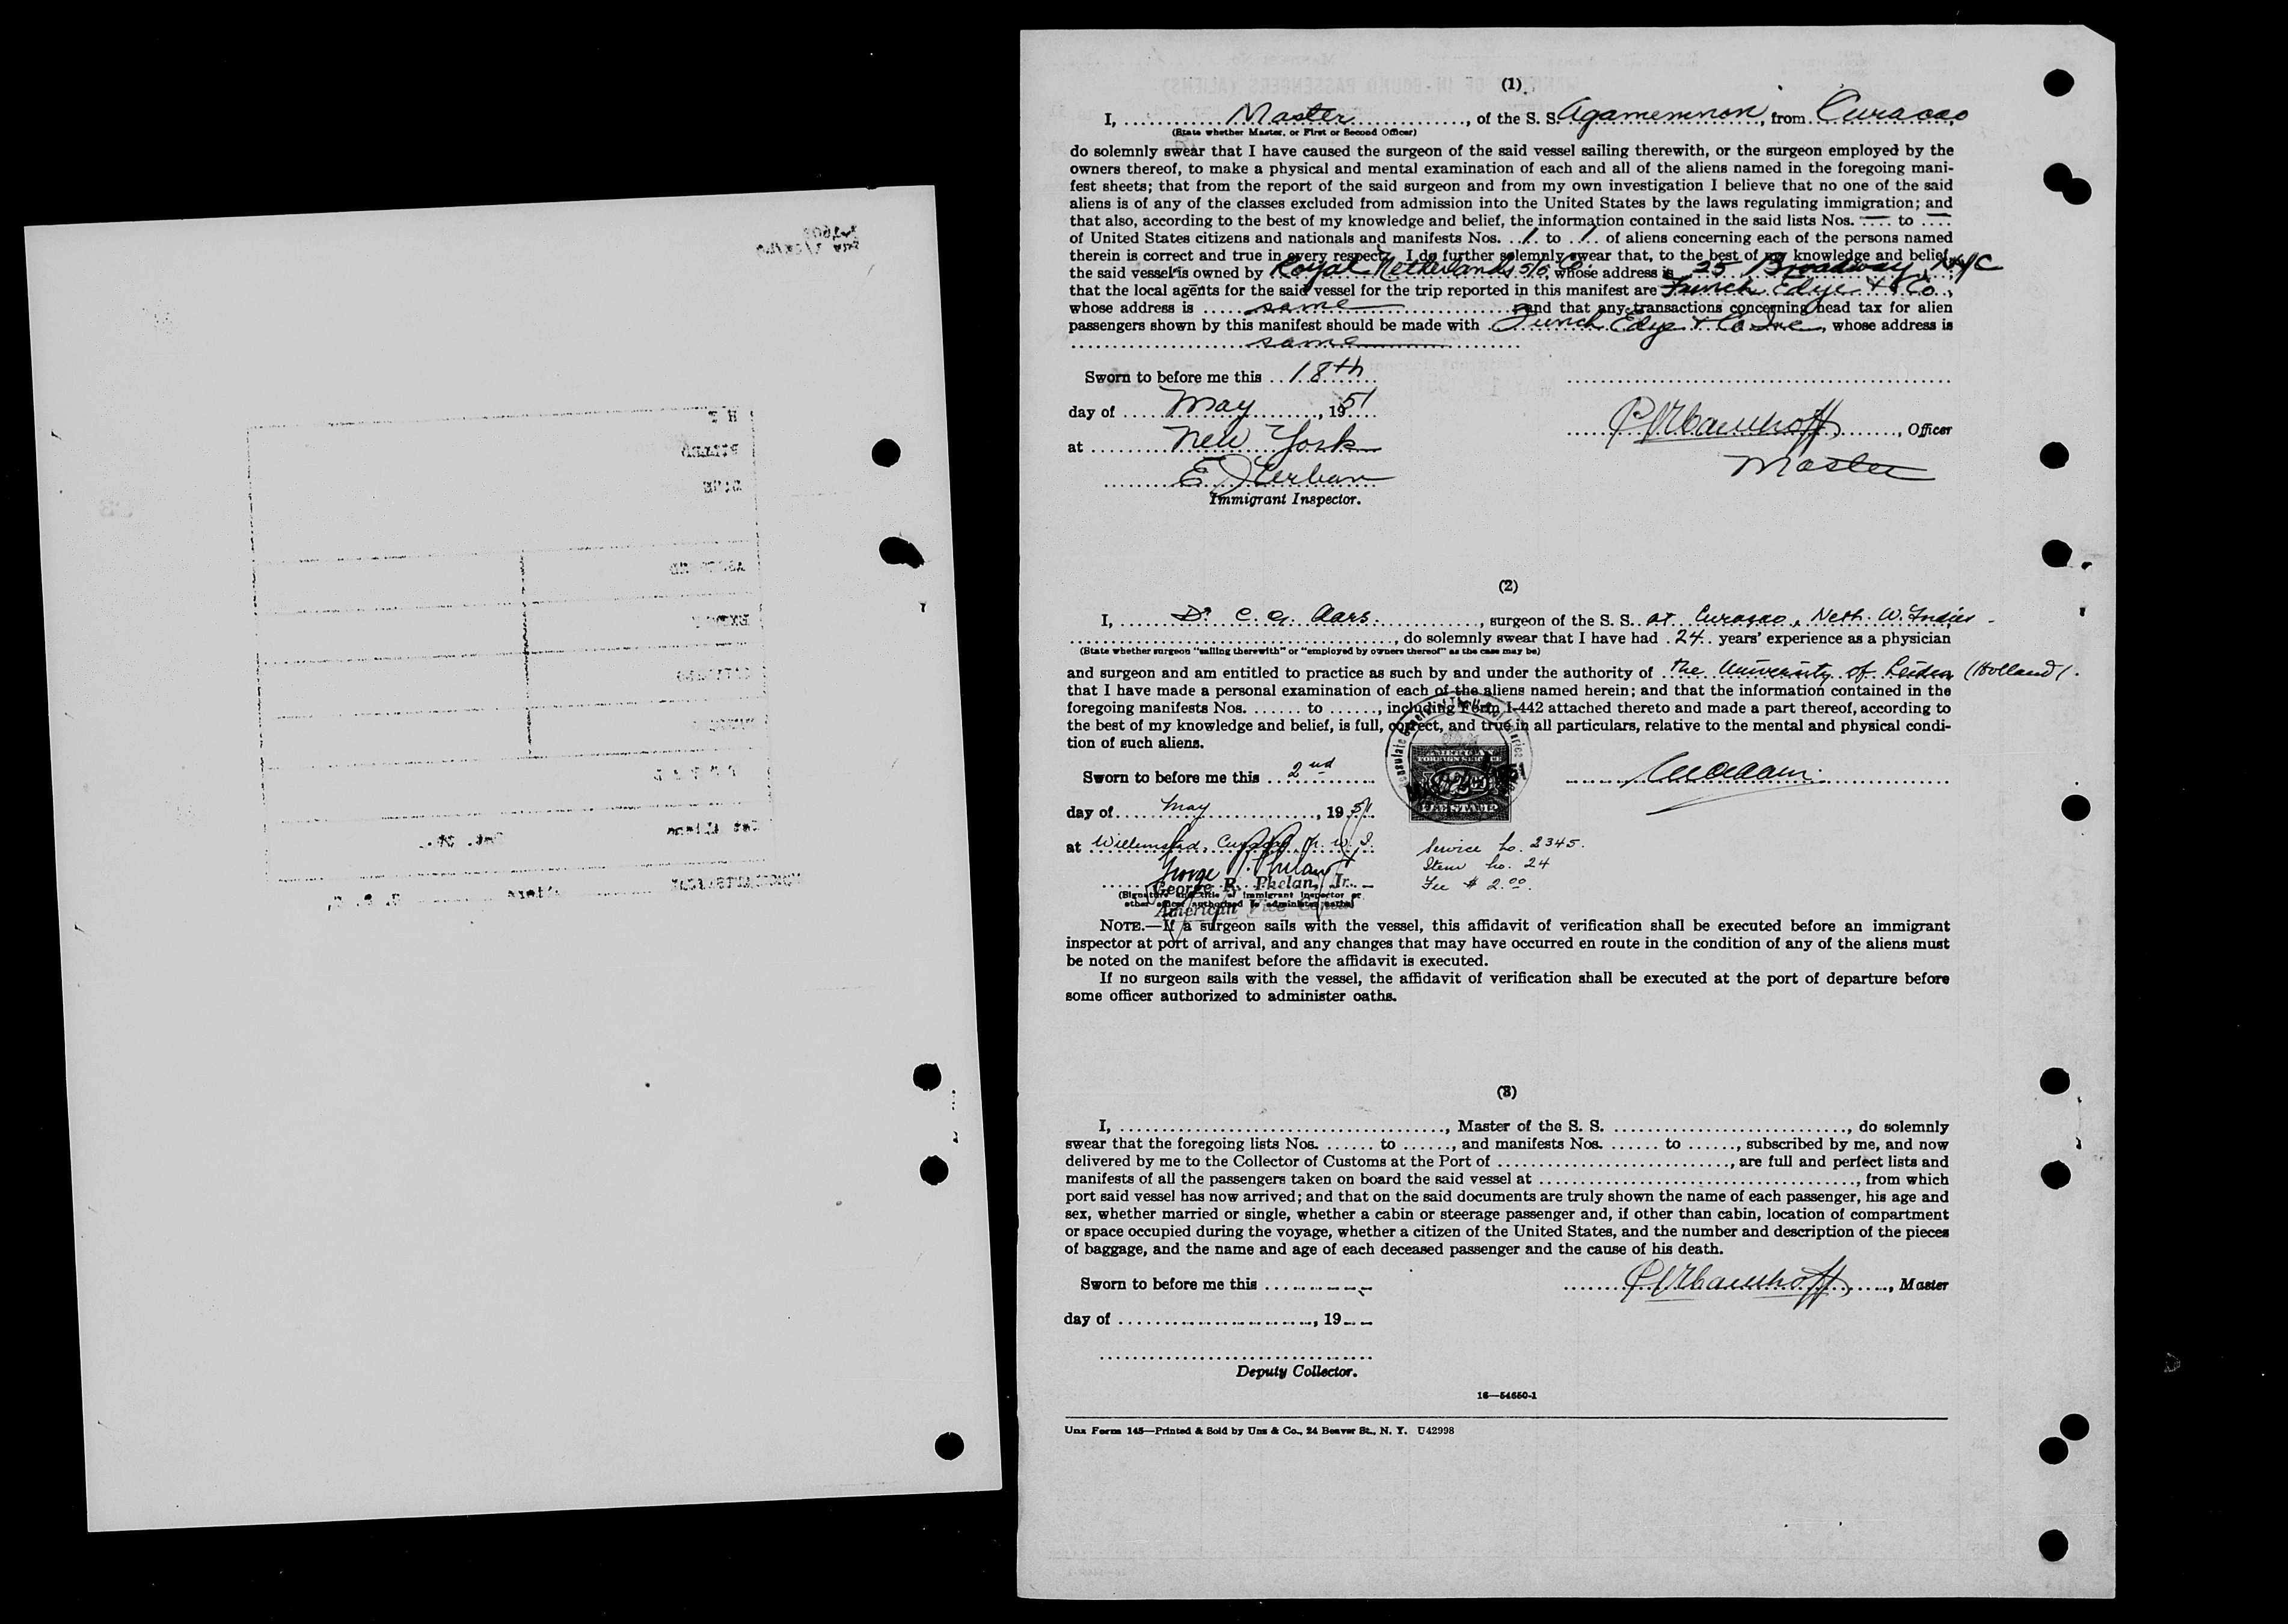 (1)
I, Master, of the S. S. Agamemnon, from Curacao
(State whether Master, or First or Second Officer)
do solemnly swear that I have caused the surgeon of the said vessel sailing therewith, or the surgeon employed by the
owners thereof, to make a physical and mental examination of each and all of the aliens named in the foregoing mani-
fest sheets; that from the report of the said surgeon and from my own investigation I believe that no one of the said
aliens is of any of the classes excluded from admission into the United States by the laws regulating immigration; and
that also, according to the best of my knowledge and belief, the information contained in the said lists Nos. — to —
of United States citizens and nationals and manifests Nos. 1 to 1 of aliens concerning each of the persons named
therein is correct and true in every respect. I do further solemnly swear that, to the best of my knowledge and belief,
the said vessel is owned by Royal Netherlands S/S Co., whose address is 25 Broadway, NYC
that the local agents for the said vessel for the trip reported in this manifest are Funch Edye & Co.,
whose address is same and that any transactions concerning head tax for alien
passengers shown by this manifest should be made with Funch Edye & Co Inc, whose address is
same
Sworn to before me this 18th
day of May, 1951
, Officer
at New York
Master
Immigrant Inspector.
(2)
I, Dr. C. G. Aars, surgeon of the S. S. at Curasao, Neth. W. Indies
, do solemnly swear that I have had 24 years' experience as a physician
(State whether surgeon "sailing therewith" or "employed by owners thereof" as the case may be)
and surgeon and am entitled to practice as such by and under the authority of the University of Leiden (Holland).
that I have made a personal examination of each of the aliens named herein; and that the information contained in the
foregoing manifests Nos. ....... to ......., including Form I-442 attached thereto and made a part thereof, according to
the best of my knowledge and belief, is full, correct, and true in all particulars, relative to the mental and physical condi-
tion of such aliens.
AMERICAN
FOREIGN SERVICE
FEE STAMP
Sworn to before me this 2nd
day of May, 1951
at Willemstad, Curaçao, N. W. I.
Service No. 2345.
Item No. 24
Fee $ 2.00.
George R. Phelan, Jr.
(Signature and title of immigrant inspector or
other officer authorized to administer oaths)
American Vice Consul
NOTE.—If a surgeon sails with the vessel, this affidavit of verification shall be executed before an immigrant
inspector at port of arrival, and any changes that may have occurred en route in the condition of any of the aliens must
be noted on the manifest before the affidavit is executed.
If no surgeon sails with the vessel, the affidavit of verification shall be executed at the port of departure before
some officer authorized to administer oaths.
(3)
I, ......................................., Master of the S. S. ............................, do solemnly
swear that the foregoing lists Nos. ....... to ......., and manifests Nos. ....... to ......., subscribed by me, and now
delivered by me to the Collector of Customs at the Port of ............................, are full and perfect lists and
manifests of all the passengers taken on board the said vessel at ......................................, from which
port said vessel has now arrived; and that on the said documents are truly shown the name of each passenger, his age and
sex, whether married or single, whether a cabin or steerage passenger and, if other than cabin, location of compartment
or space occupied during the voyage, whether a citizen of the United States, and the number and description of the pieces
of baggage, and the name and age of each deceased passenger and the cause of his death.
Sworn to before me this .............
, Master
day of ........................, 19....
Deputy Collector.
16—54650-1
Unz Form 145—Printed & Sold by Unz & Co., 24 Beaver St., N. Y. U42998